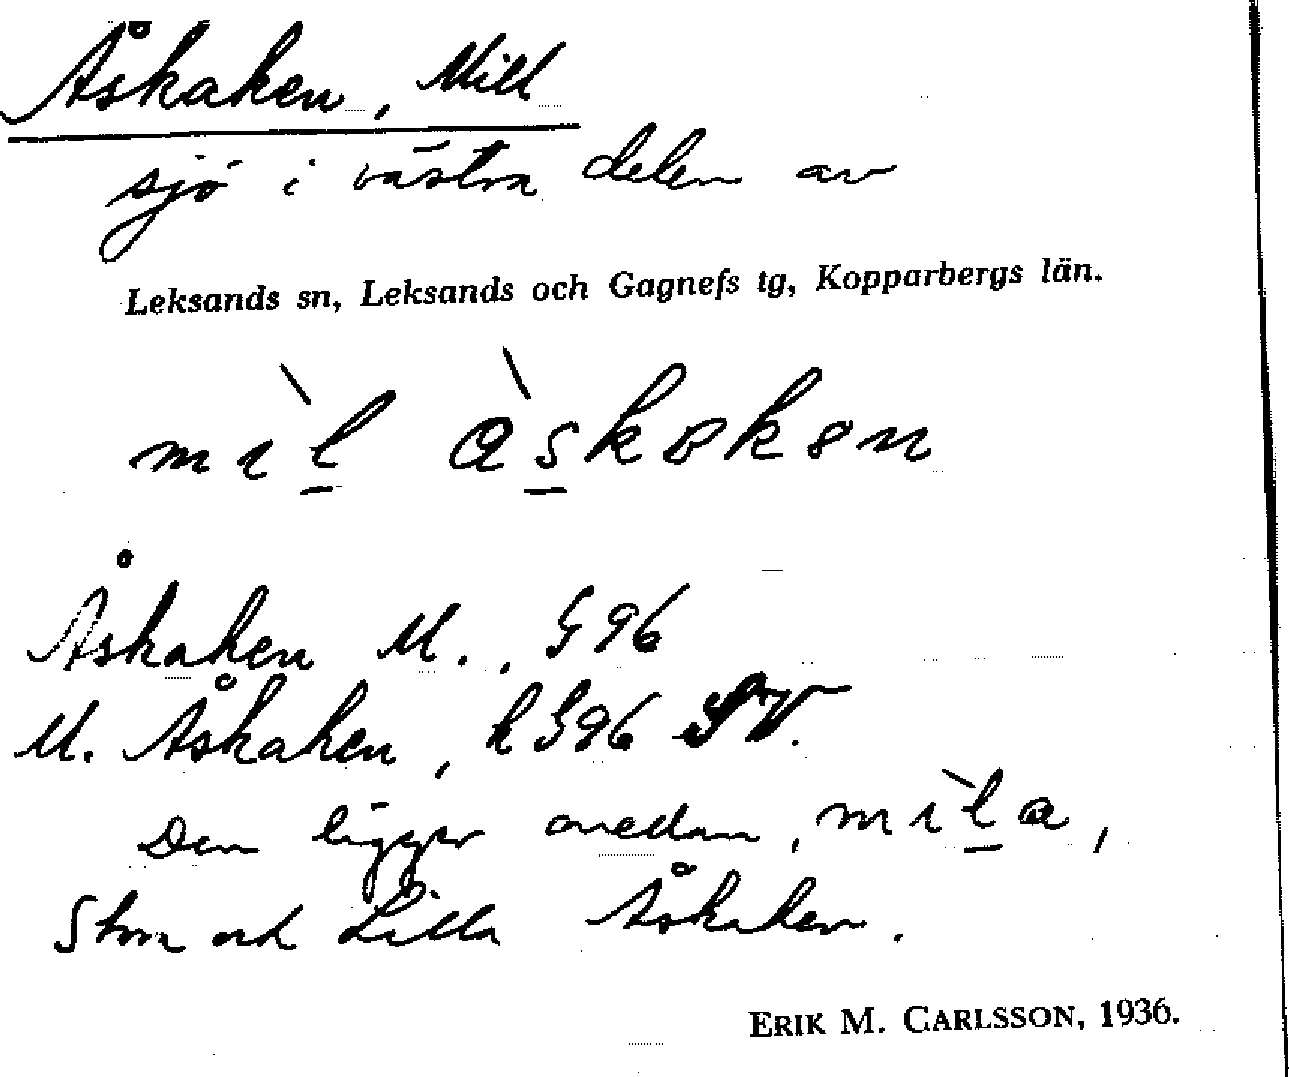 Åskaken, Mill
sjö i västra delen av
Leksands sn, Leksands och Gagnefs tg, Kopparbergs län.
Åskaken M., G 96
M. Åskaken, k G96 SV.
Den ligger
Stora och Lilla Åskaken.
ERIK M. CARLSSON, 1936.